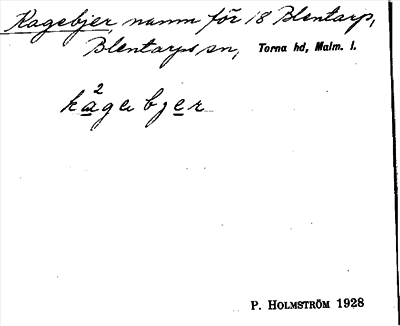 Kagebjer, namn för 18 Blentarp,
Blentarps sn, Torna hd, Malm. l.
ka²gebjer
P. HOLMSTRÖM 1928